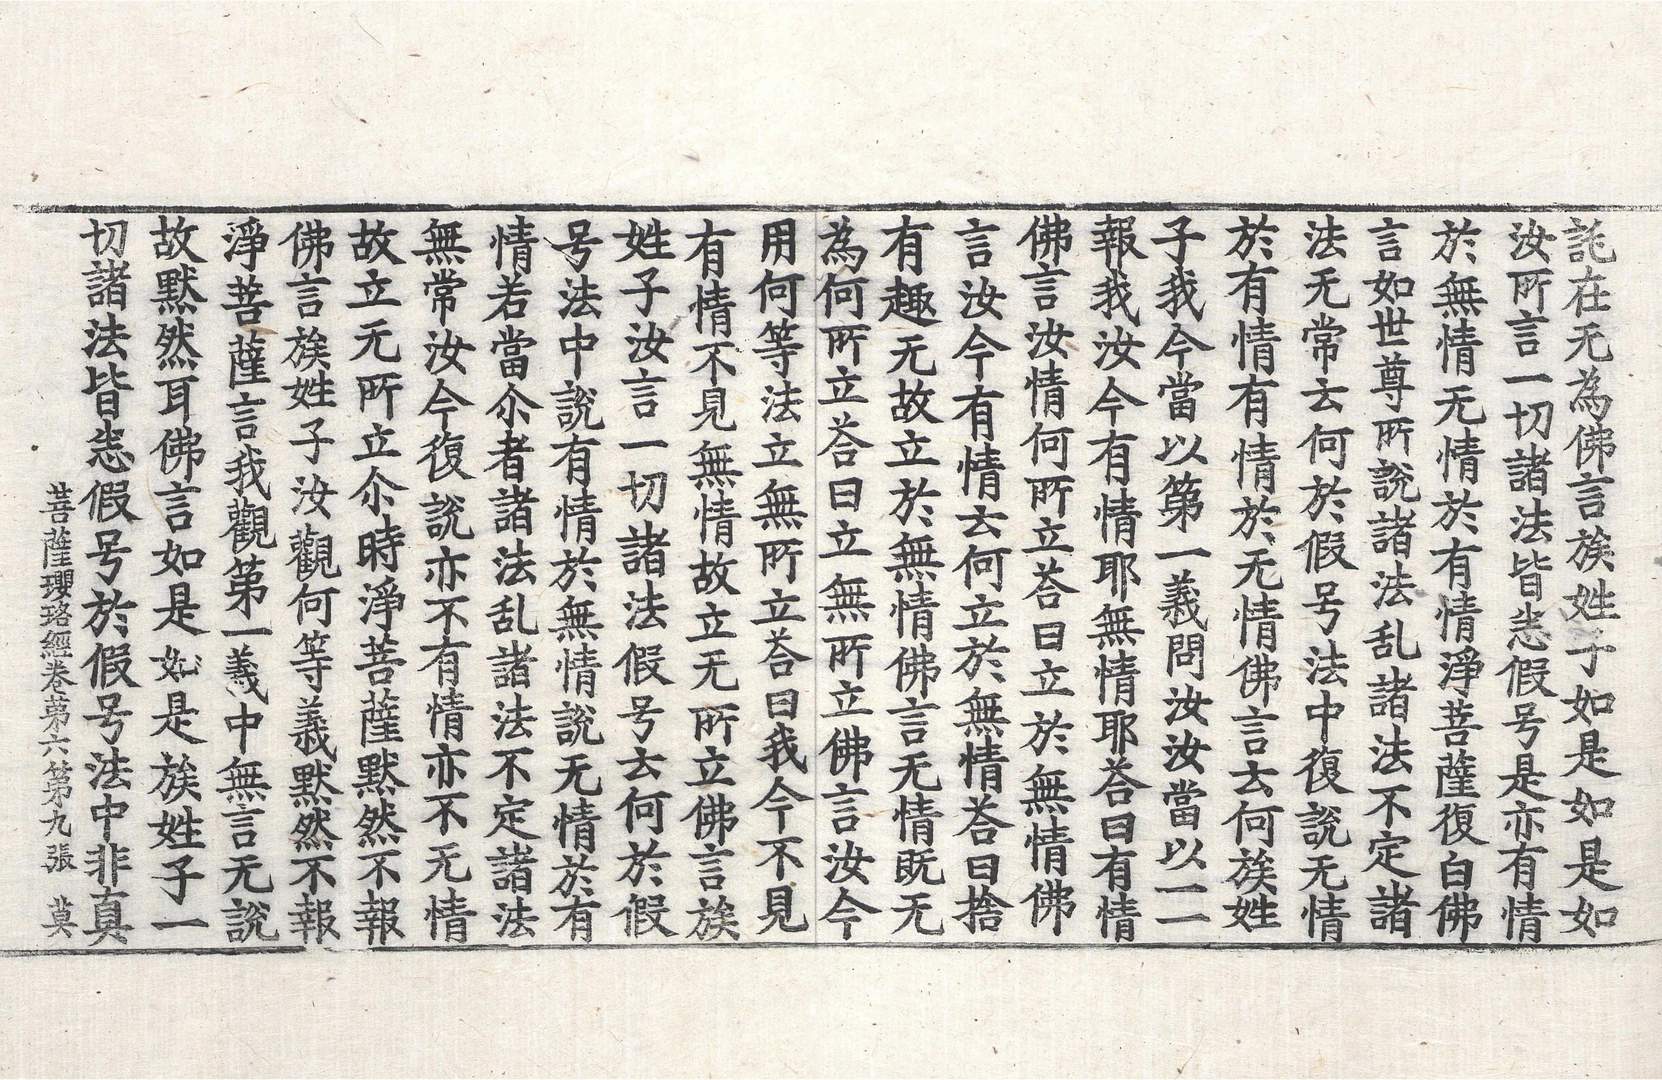 託在无為佛言族姓子如是如是如
汝所言一切諸法皆悉假号是亦有情
於無情无情於有情淨菩薩復白佛
言如世尊所說諸法乱諸法不定諸
法无常云何於假号法中復說无情
於有情有情於无情佛言云何族姓
子我今當以第一義問汝汝當以一一
報我汝今有情耶無情耶荅曰有情
佛言汝情何所立荅曰立於無情佛
言汝今有情云何立於無情荅曰捨
有趣无故立於無情佛言无情既无
為何所立荅曰立無所立佛言汝今
用何等法立無所立荅曰我今不見
有情不見無情故立无所立佛言族
姓子汝言一切諸法假号云何於假
号法中說有情於無情說无情於有
情若當尒者諸法乱諸法不定諸法
無常汝今復說亦不有情亦不无情
故立无所立尒時淨菩薩默然不報
佛言族姓子汝觀何等義默然不報
淨菩薩言我觀第一義中無言无說
故默然耳佛言如是如是族姓子一
切諸法皆悉假号於假号法中非真
菩薩瓔珞經卷第六 第九張 莫